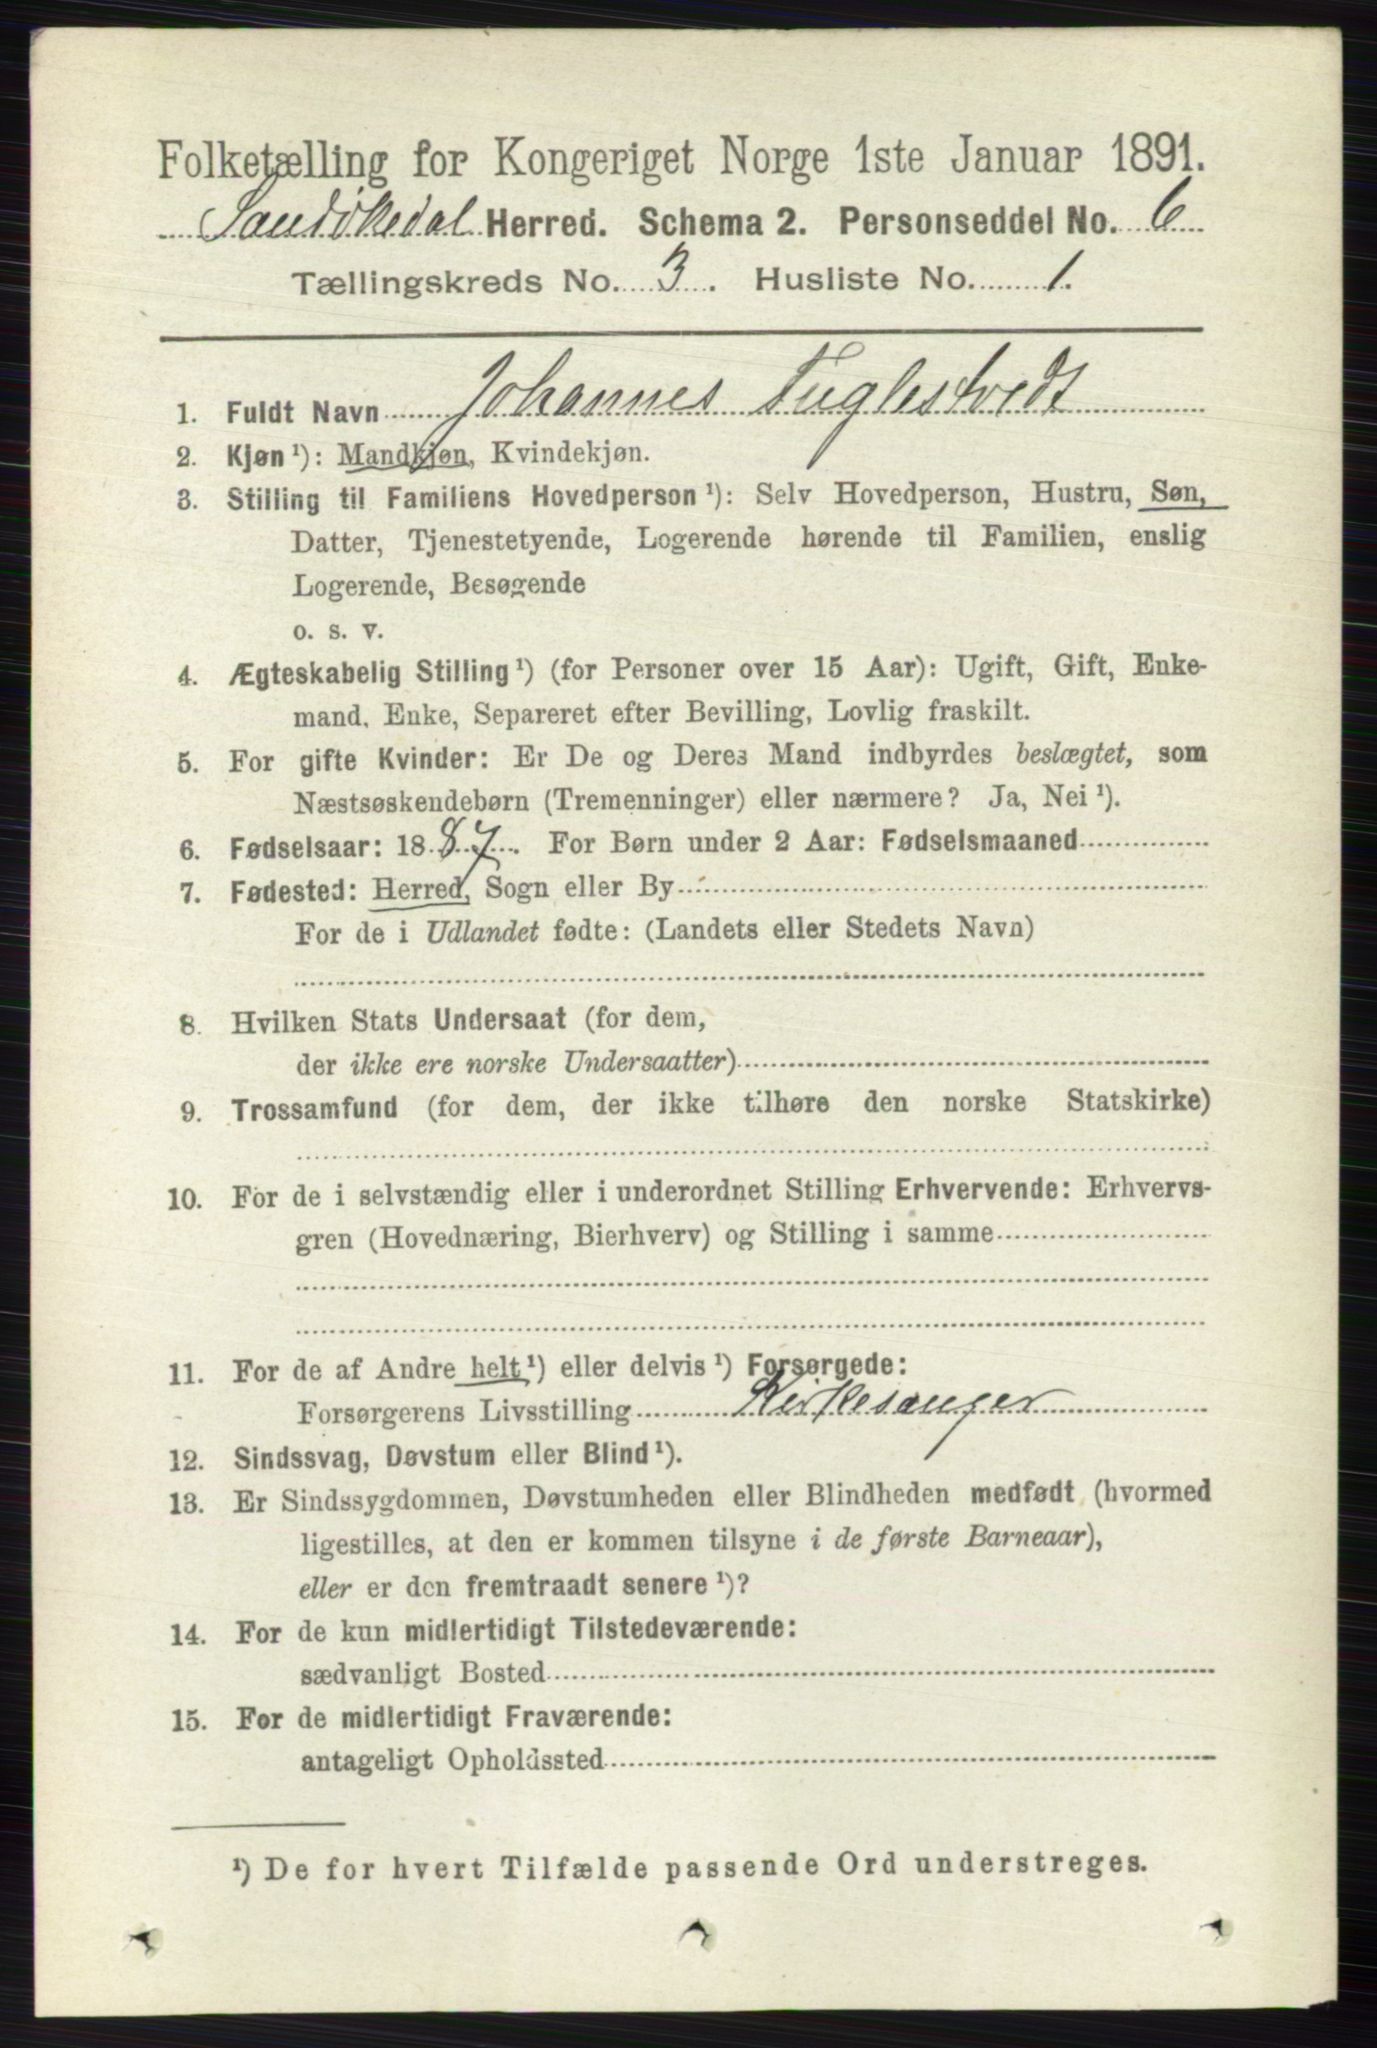 Folketælling for Kongeriget Norge 1ste Januar 1891.
Sandøkedal Herred. Schema 2. Personseddel No. 6
Tællingskreds No. 3. Husliste No. 1.
1. Fuldt Navn Johannes Fuglestvedt
2. Kjøn ¹): Mandkjøn, Kvindekjøn.
3. Stilling til Familiens Hovedperson ¹): Selv Hovedperson, Hustru, Søn,
Datter, Tjenestetyende, Logerende hørende til Familien, enslig
Logerende, Besøgende
o. s. v.
4. Ægteskabelig Stilling ¹) (for Personer over 15 Aar): Ugift, Gift, Enke-
mand, Enke, Separeret efter Bevilling, Lovlig fraskilt.
5. For gifte Kvinder: Er De og Deres Mand indbyrdes beslægtet, som
Næstsøskendebørn (Tremenninger) eller nærmere? Ja, Nei ¹).
6. Fødselsaar: 1887. For Børn under 2 Aar: Fødselsmaaned
7. Fødested: Herred, Sogn eller By
For de i Udlandet fødte: (Landets eller Stedets Navn)
8. Hvilken Stats Undersaat (for dem,
der ikke ere norske Undersaatter)
9. Trossamfund (for dem, der ikke tilhøre den norske Statskirke)
10. For de i selvstændig eller i underordnet Stilling Erhvervende: Erhvervs-
gren (Hovednæring, Bierhverv) og Stilling i samme
11. For de af Andre helt ¹) eller delvis ¹) Forsørgede:
Forsørgerens Livsstilling Kirkesanger
12. Sindssvag, Døvstum eller Blind ¹).
13. Er Sindssygdommen, Døvstumheden eller Blindheden medfødt (hvormed
ligestilles, at den er kommen tilsyne i de første Barneaar),
eller er den fremtraadt senere ¹)?
14. For de kun midlertidigt Tilstedeværende:
sædvanligt Bosted
15. For de midlertidigt Fraværende:
antageligt Opholdssted
¹) De for hvert Tilfælde passende Ord understreges.